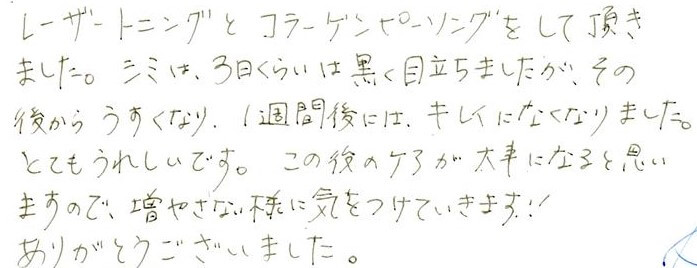 レーザートニングとコラーゲンピーリングをして頂き
ました。シミは、3日くらいは黒く目立ちましたが、その
後からうすくなり、1週間後には、キレイになくなりました。
とてもうれしいです。この後のケアが大事になると思い
ますので、増やさない様に気をつけていきます!!
ありがとうございました。